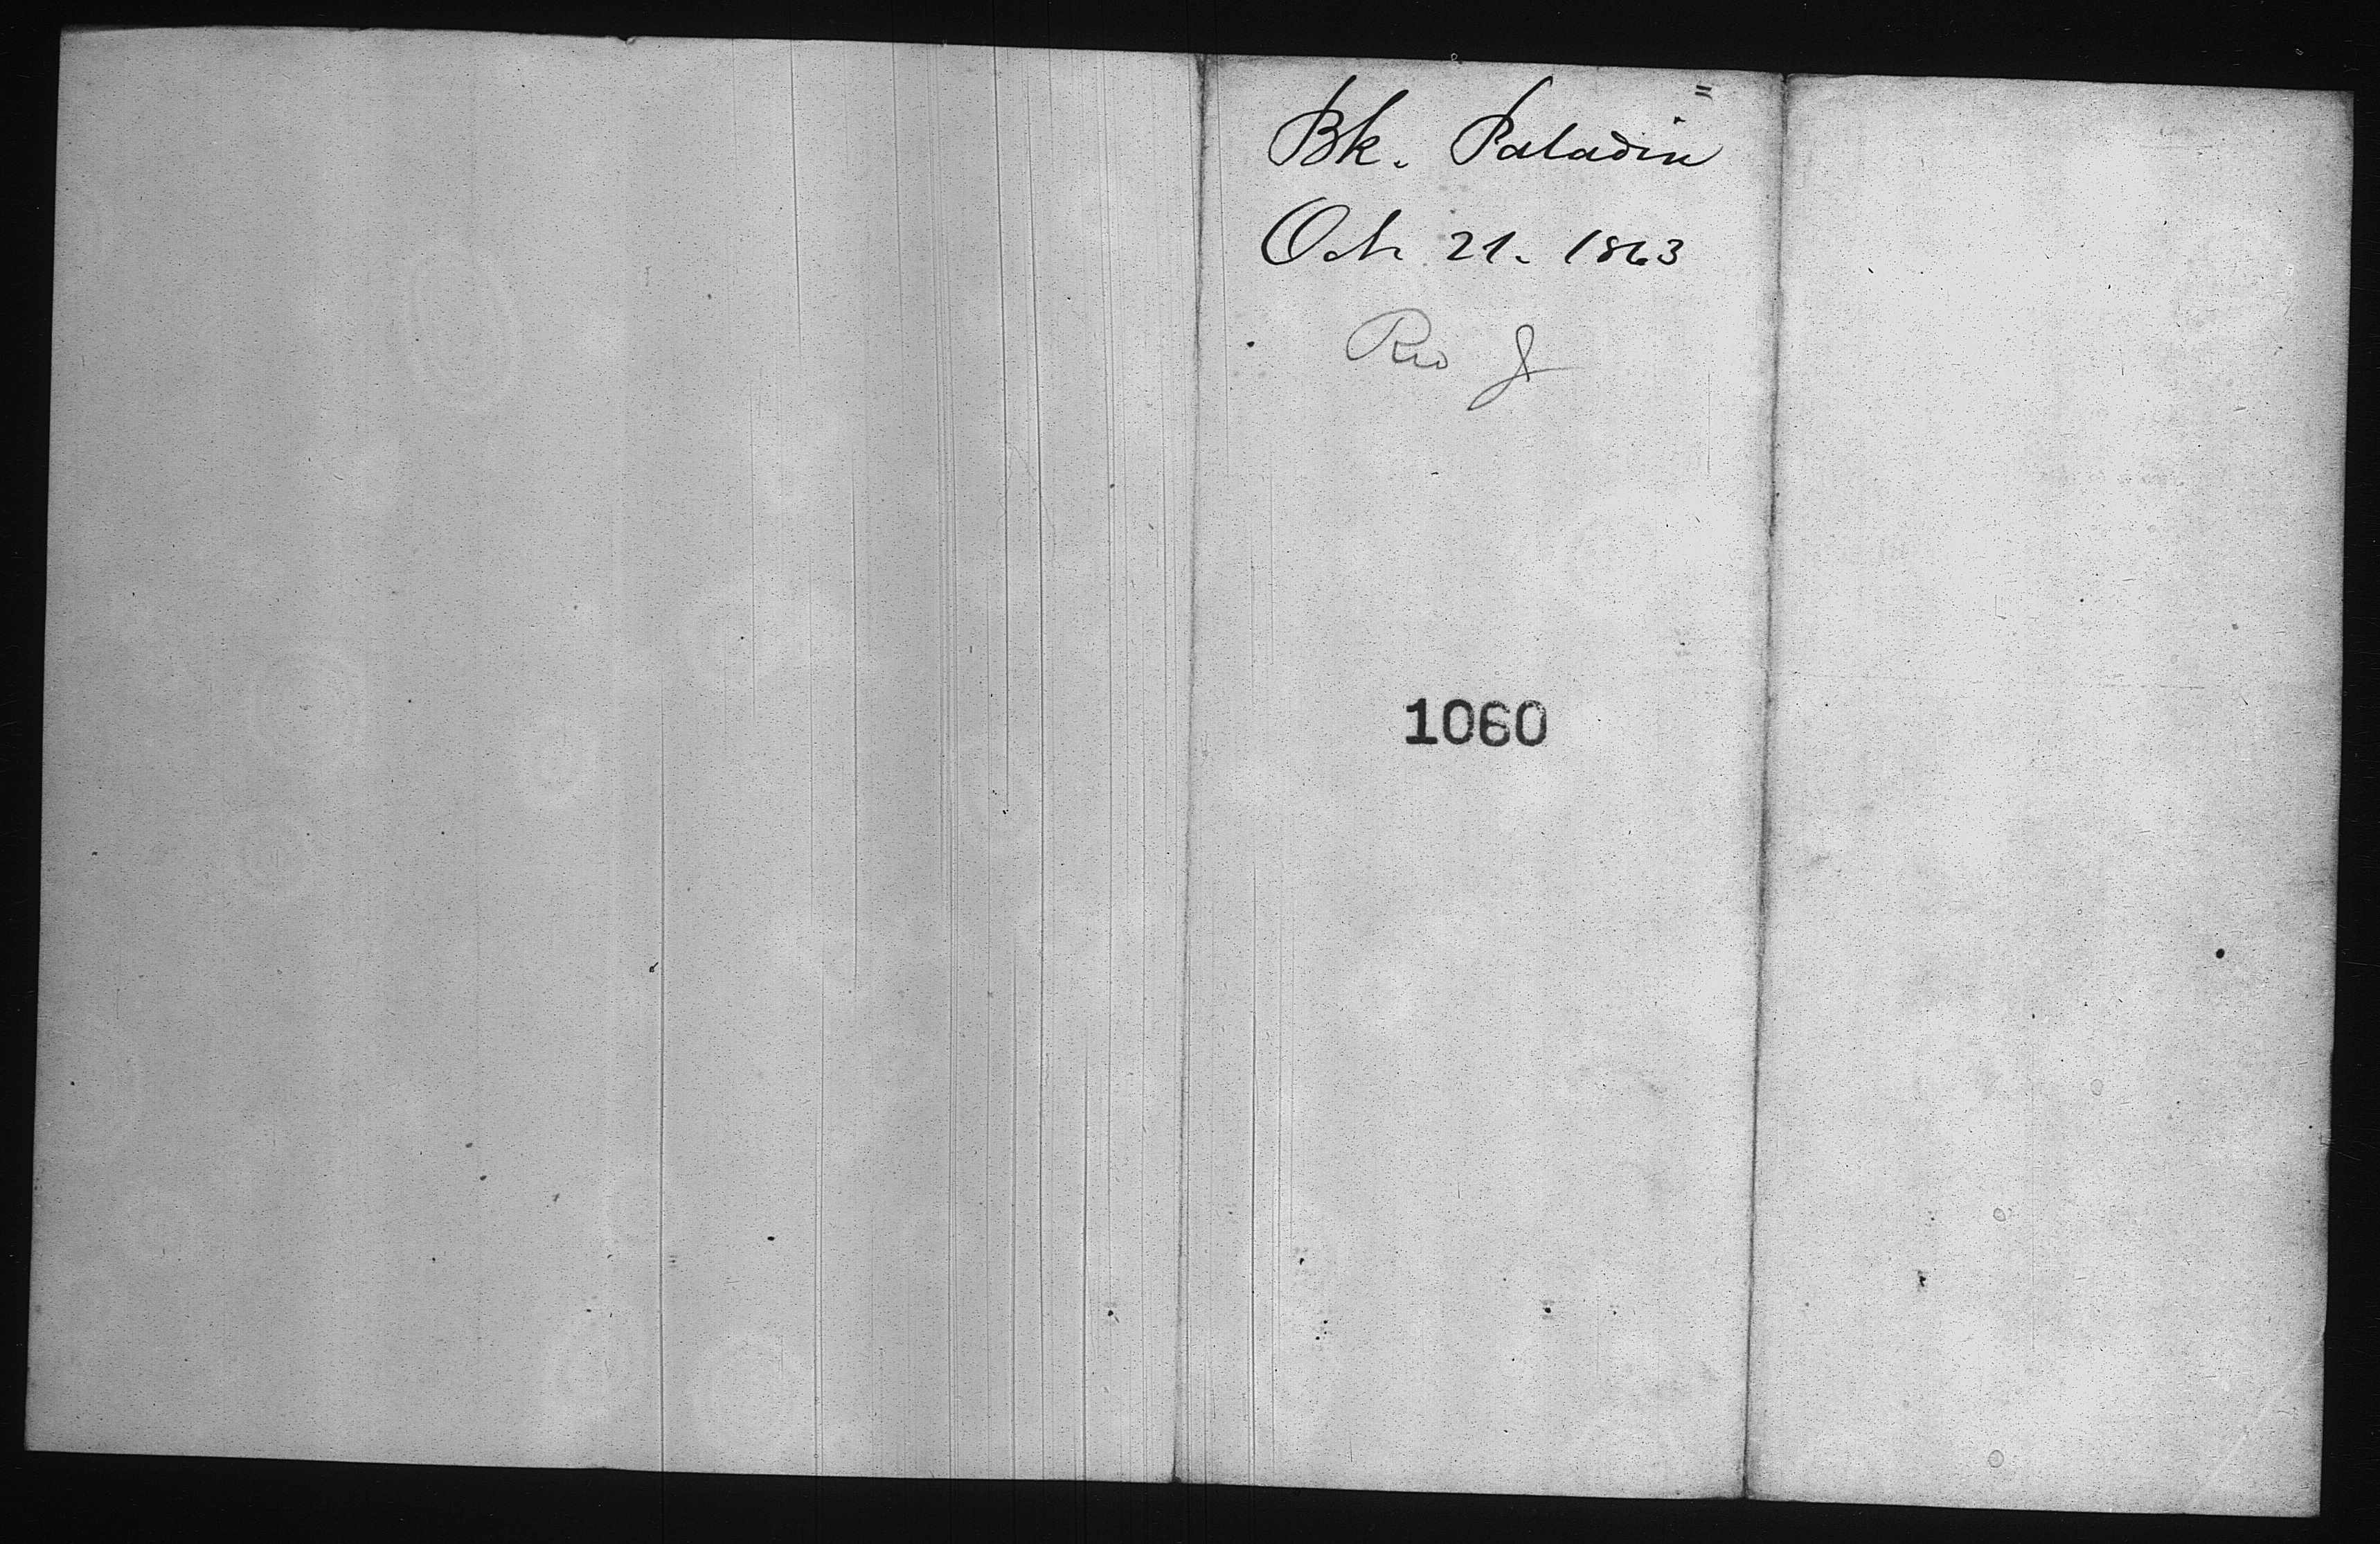 Bk. Paladin
Oct. 21. 1863
Rio J
1060